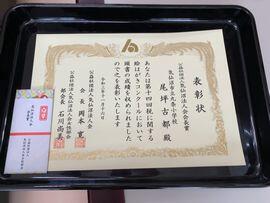 表彰状
公益社団法人気仙沼法人会会長賞
気仙沼市立九条小学校
尾坪古都殿
あなたは第十四回税に関する
絵はがきコンクールにおいて
頭書の成績を収められました
のでこれを表彰いたします
令和三年十一月十六日
公益社団法人気仙沼法人会
会長 岡本寛
公益社団法人気仙沼法人会女性部会
部会長 石川尚美